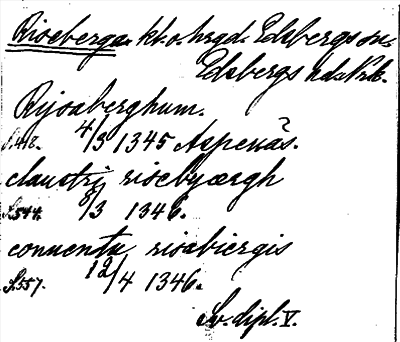 Riseberga. kl. o. hrgd. Edsbergs sn.
Edsbergs hd. Nrk.
Rijsaberghum.
S. 418. 4/3 1345 Aspenäs.
claustrj risebyærgh
S. 544. 8/3 1346.
conuentu risabiergis
S. 557. 12/4 1346.
Sv. dipl. V.